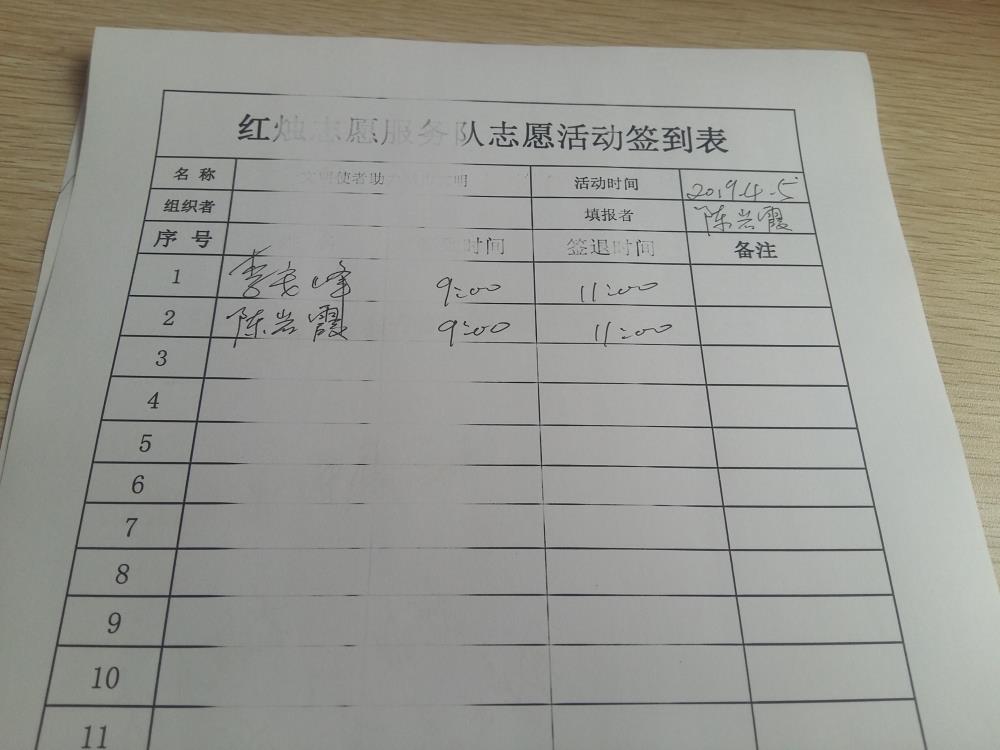 红烛志愿服务队志愿活动签到表
名 称 文明使者助 明 活动时间 2019.4.5
组织者 填报者 陈岩霞
序 号 时间 签退时间 备注
1 李 峰 9:00 11:00
2 陈岩霞 9:00 11:00
3
4
5
6
7
8
9
10
11